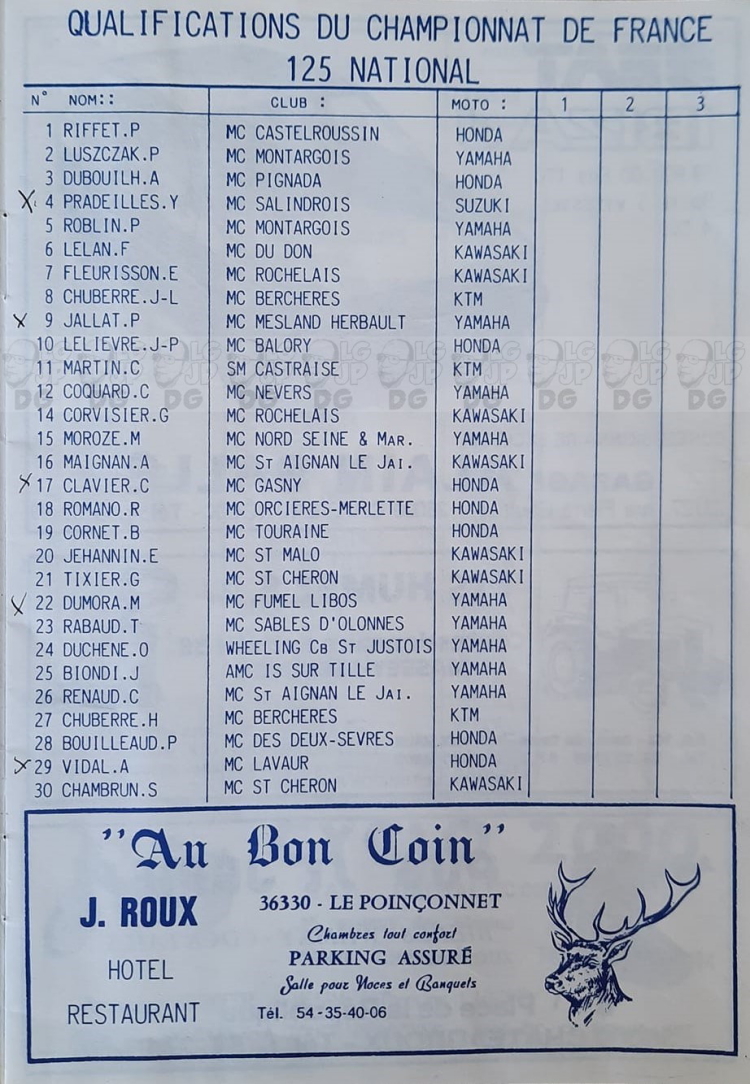 QUALIFICATIONS DU CHAMPIONNAT DE FRANCE
125 NATIONAL
N° NOM:: CLUB : MOTO : 1 2 3
1 RIFFET.P MC CASTELROUSSIN HONDA
2 LUSZCZAK.P MC MONTARGOIS YAMAHA
3 DUBOUILH.A MC PIGNADA HONDA
X 4 PRADEILLES.Y MC SALINDROIS SUZUKI
5 ROBLIN.P MC MONTARGOIS YAMAHA
6 LELAN.F MC DU DON KAWASAKI
7 FLEURISSON.E MC ROCHELAIS KAWASAKI
8 CHUBERRE.J-L MC BERCHERES KTM
X 9 JALLAT.P MC MESLAND HERBAULT YAMAHA
10 LELIEVRE.J-P MC BALORY HONDA
11 MARTIN.C SM CASTRAISE KTM
12 COQUARD.C MC NEVERS YAMAHA
14 CORVISIER.G MC ROCHELAIS KAWASAKI
15 MOROZE.M MC NORD SEINE & MAR. YAMAHA
16 MAIGNAN.A MC ST AIGNAN LE JAI. KAWASAKI
X 17 CLAVIER.C MC GASNY HONDA
18 ROMANO.R MC ORCIERES-MERLETTE HONDA
19 CORNET.B MC TOURAINE HONDA
20 JEHANNIN.E MC ST MALO KAWASAKI
21 TIXIER.G MC ST CHERON KAWASAKI
X 22 DUMORA.M MC FUMEL LIBOS YAMAHA
23 RABAUD.T MC SABLES D'OLONNES YAMAHA
24 DUCHENE.O WHEELING CB ST JUSTOIS YAMAHA
25 BIONDI.J AMC IS SUR TILLE YAMAHA
26 RENAUD.C MC ST AIGNAN LE JAI. YAMAHA
27 CHUBERRE.H MC BERCHERES KTM
28 BOUILLEAUD.P MC DES DEUX-SEVRES HONDA
X 29 VIDAL.A MC LAVAUR HONDA
30 CHAMBRUN.S MC ST CHERON KAWASAKI
"Au Bon Coin"
J. ROUX
HOTEL
RESTAURANT
36330 - LE POINÇONNET
Chambres tout confort
PARKING ASSURÉ
Salle pour Noces et Banquets
Tél. 54-35-40-06